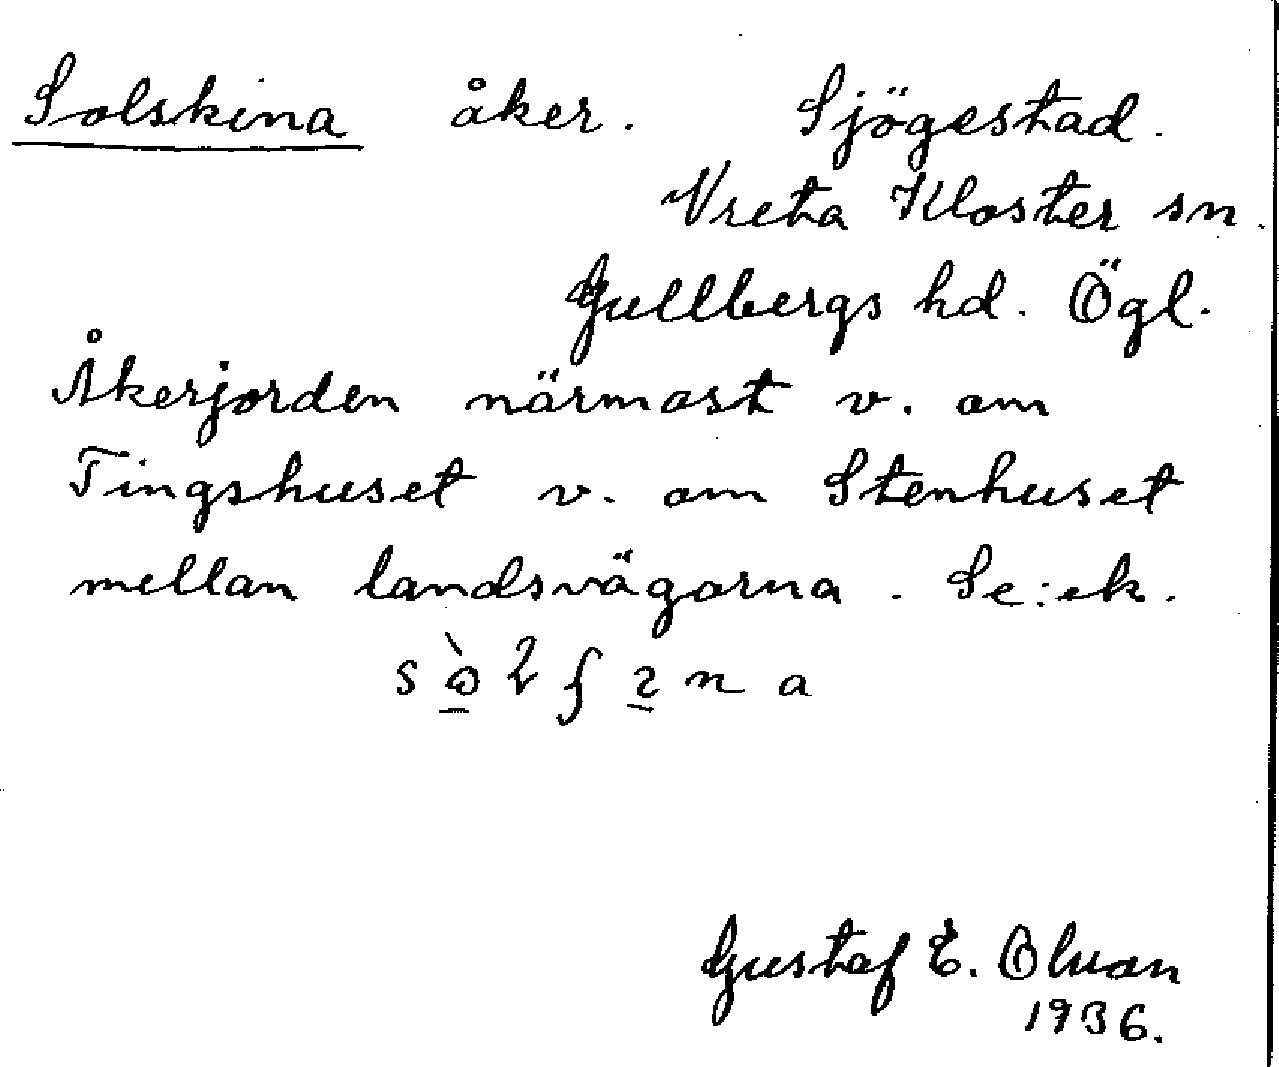 Solskina åker. Sjögestad.
Vreta Kloster sn.
Gullbergs hd. Ögl.
Åkerjorden närmast v. om
Tingshuset v. om Stenhuset
mellan landsvägarna. Se: ek.
Gustaf E. Olvan
1936.